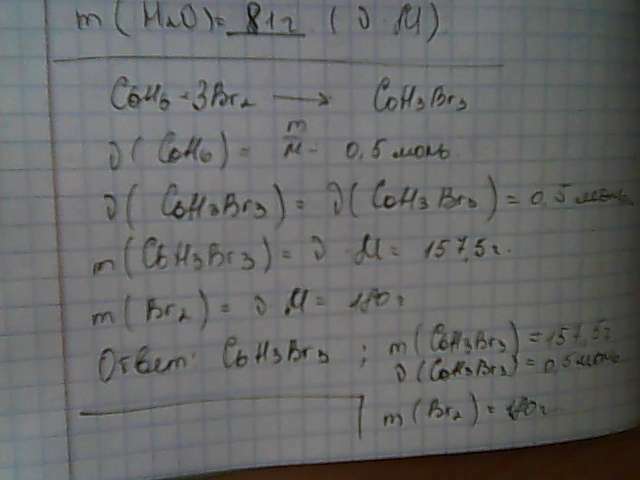 m(H₂O) = 81г (ν·M)
C6H6 + 3Br₂ → C6H3Br3
ν(C6H6) = m/M = 0,5 моль
ν(C6H3Br3) = ν(C6H3Br3) = 0,5 моль
m(C6H3Br3) = ν M = 157,5 г.
m(Br₂) = ν M =
Ответ: C6H3Br3 ; m(C6H3Br3) = 157,5г
ν(C6H3Br3) = 0,5 моль
m(Br₂) =